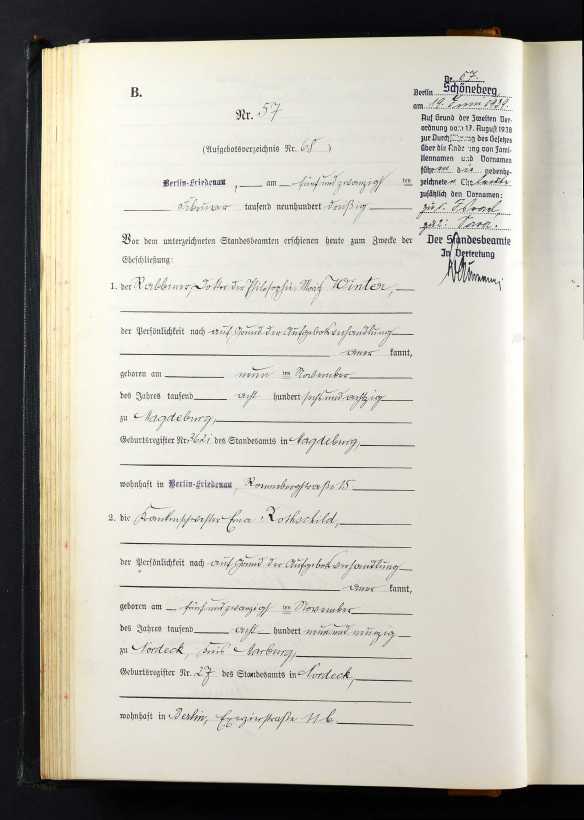 B.
Nr. 57
(Aufgebotsverzeichnis Nr. 68)
Berlin-Friedenau, am fünfundzwanzigsten
Februar tausend neunhundert dreißig
Vor dem unterzeichneten Standesbeamten erschienen heute zum Zwecke der
Eheschließung:
1. der Rabbiner, Doktor der Philosophie Winter,
der Persönlichkeit nach auf Grund der Aufgebotsverhandlung
anerkannt,
geboren am neun ten November
des Jahres tausend acht hundert sechsundachtzig
zu Magdeburg,
Geburtsregister Nr. 3621 des Standesamts in Magdeburg,
wohnhaft in Berlin-Friedenau, Rönnebergstraße 15
2. die Krankenschwester Rothschild,
der Persönlichkeit nach auf Grund der Aufgebotsverhandlung
anerkannt,
geboren am fünfundzwanzigsten November
des Jahres tausend acht hundert neunundneunzig
zu Nordeck, Kreis Marburg,
Geburtsregister Nr. 27 des Standesamts in Nordeck,
wohnhaft in Berlin, Exerzierstraße 11b
Nr. 67.
Berlin Schöneberg
am 19. 1939.
Auf Grund der Zweiten Ver-
ordnung vom 17. August 1938
zur Durchführung des Gesetzes
über die Änderung von Fami-
liennamen und Vornamen
führen die nebenbe-
zeichneten Eheleute
zusätzlich den Vornamen:
zu 1: Israel,
zu 2: Sara.
Der Standesbeamte
In Vertretung